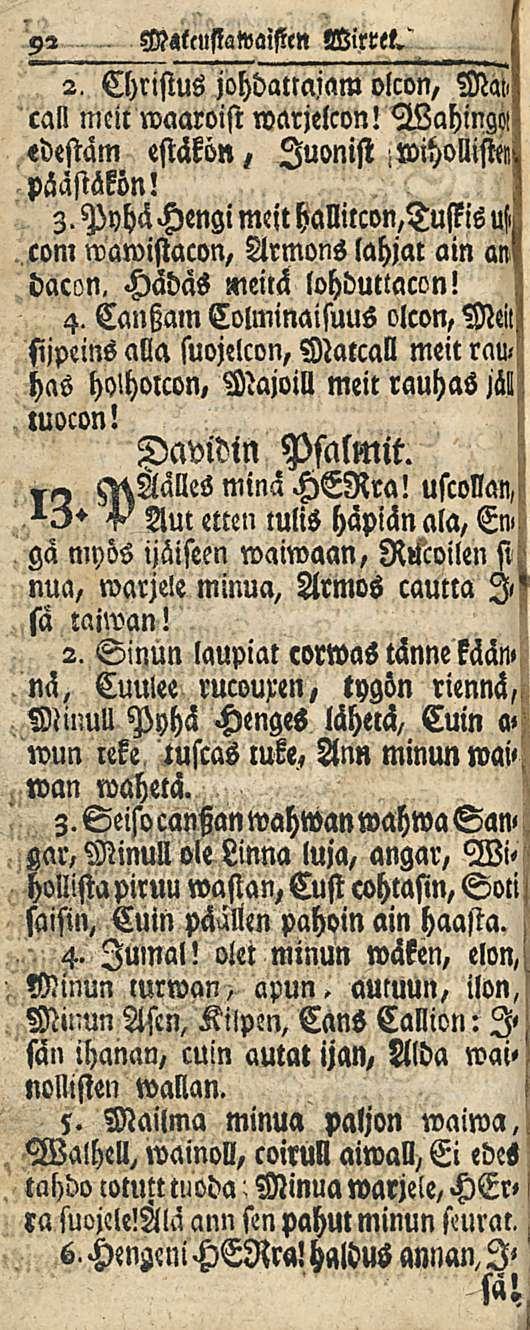 92 Matcustawaisten Wirret.
2. Christus johdattajam olcon, Mat-
call meit waaroist warjelcon! Wahingot
edestäm estäkön, Juonist wihollisten
päästäkön!
3. Pyhä Hengi meit hallitcon, Tuskis us-
com wawistacon, Armons lahjat ain an-
dacon, Hädäs meitä lohduttacon!
4. Canßam Colminaisuus olcon, Meit
sijpeins alla suojelcon, Matcall meit rau-
has holhotcon, Majoill meit rauhas jäll
tuocon!
Davidin Psalmit.
13. PÄälles minä HERra! uscollan,
Aut etten tulis häpiän ala, En-
gä myös ijäiseen waiwaan, Rucoilen si
nua, warjele minua, Armos cautta I-
sä taiwan!
2. Sinun laupiat corwas tänne kään-
nä, Cuulee rucouxen, tygön riennä,
Minull Pyhä Henges lähetä, Cuin a-
wun teke tuscas tuke, Ann minun wai-
wan wahetä.
3. Seiso canßan wahwan wahwa San-
gar, Minull ole Linna luja, angar, Wi-
hollista piruu wastan, Cust cohtasin, Soti
saisin, Cuin päällen pahoin ain haasta.
4. Jumal! olet minun wäken, elon,
Minun turwan, apun, autuun, ilon,
Minun Asen, Kilpen, Cans Callion: I-
sän ihanan, cuin autat ijan, Alda wai-
nollisten wallan.
5. Mailma minua paljon waiwa,
Walhell, wainoll, coirull aiwall, Ei edes
tahdo totutt tuoda: Minua warjele, HEr-
ra suojele! Älä ann sen pahut minun seurat.
6. Hengeni HERra! haldus annan, I-
sä!